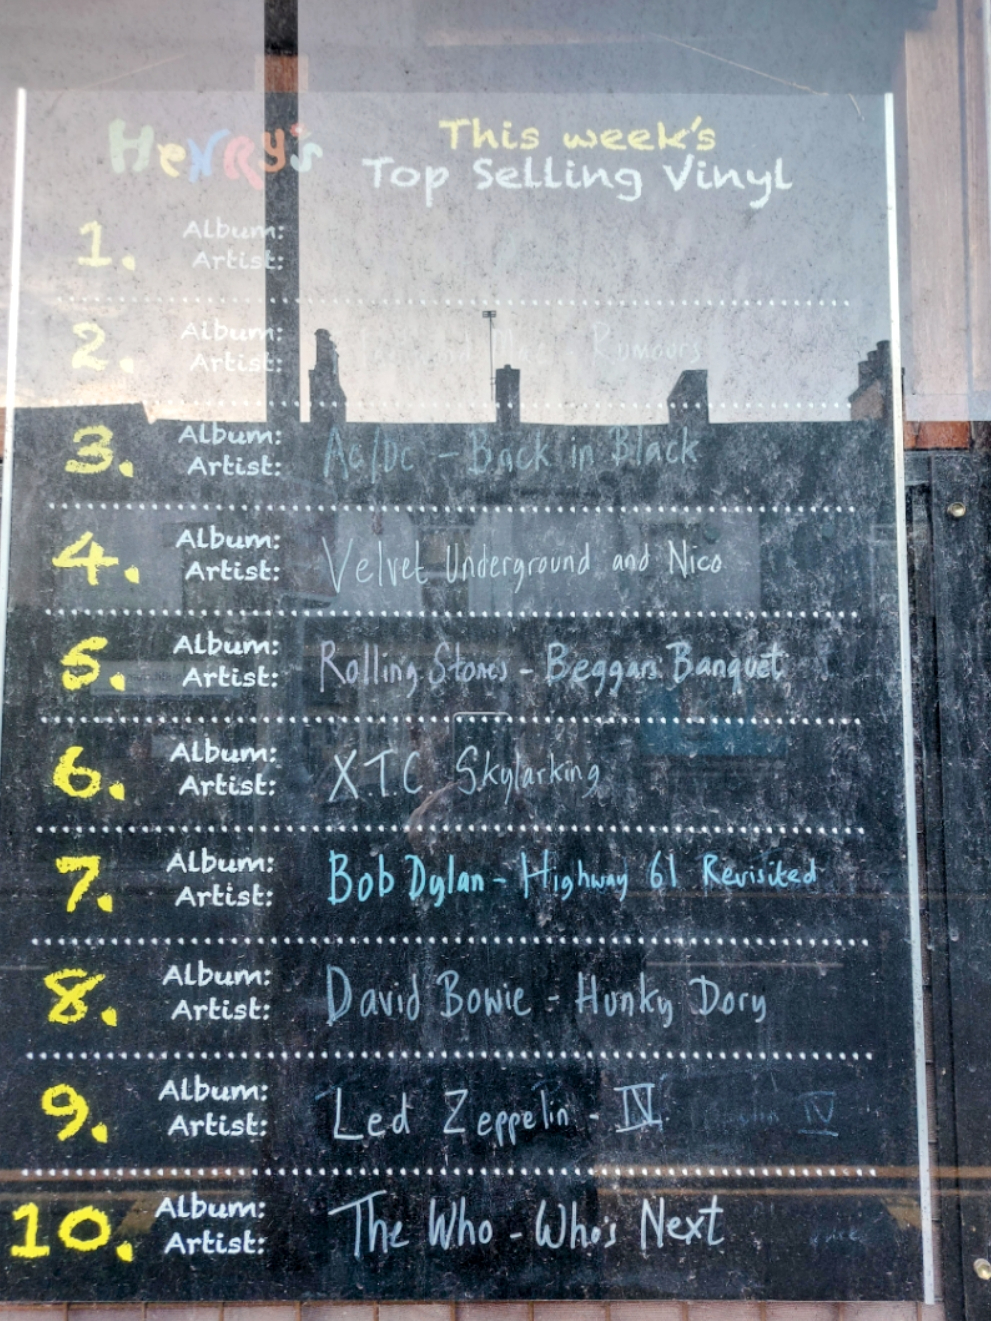 HeNRy's
This week's
Top Selling Vinyl
1.
Album:
Artist:
2.
Album:
Artist:
Rumours
3.
Album:
Artist:
Ac/Dc - Back in Black
4.
Album:
Artist:
Velvet Underground and Nico
5.
Album:
Artist:
Rolling Stones - Beggars Banquet
6.
Album:
Artist:
X.T.C. Skylarking
7.
Album:
Artist:
Bob Dylan - Highway 61 Revisited
8.
Album:
Artist:
David Bowie - Hunky Dory
9.
Album:
Artist:
Led Zeppelin - IV IV
10.
Album:
Artist:
The Who - Who's Next